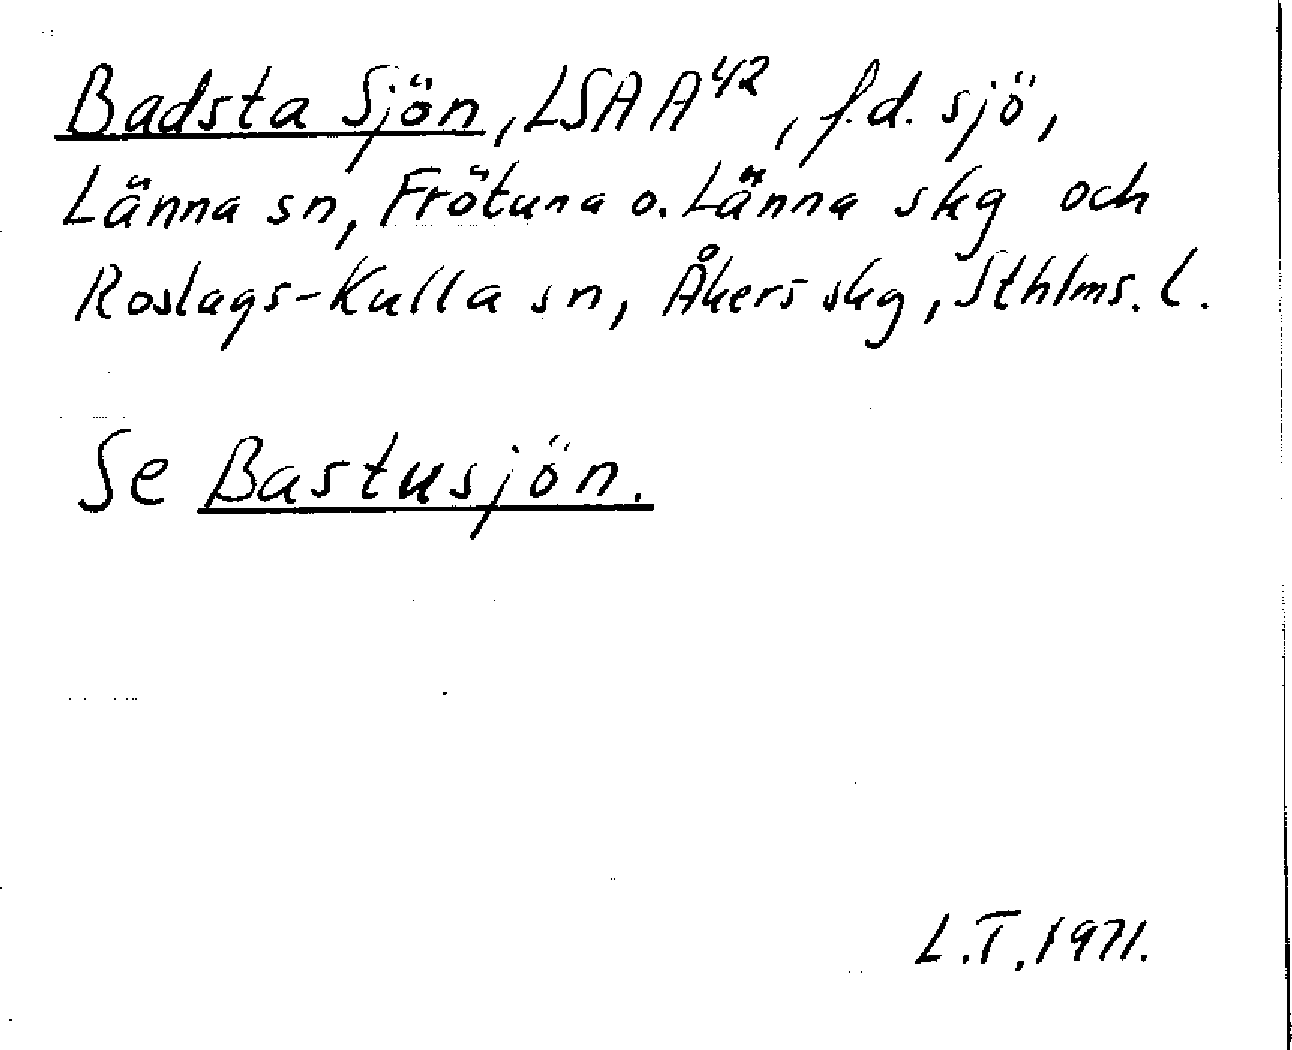 Badsta Sjön, LSA A⁴², f.d. sjö,
Länna sn, Frötuna o. Länna skg och
Roslags-Kulla sn, Åkers skg, Sthlms. l.
Se Bastusjön.
L.T. 1971.